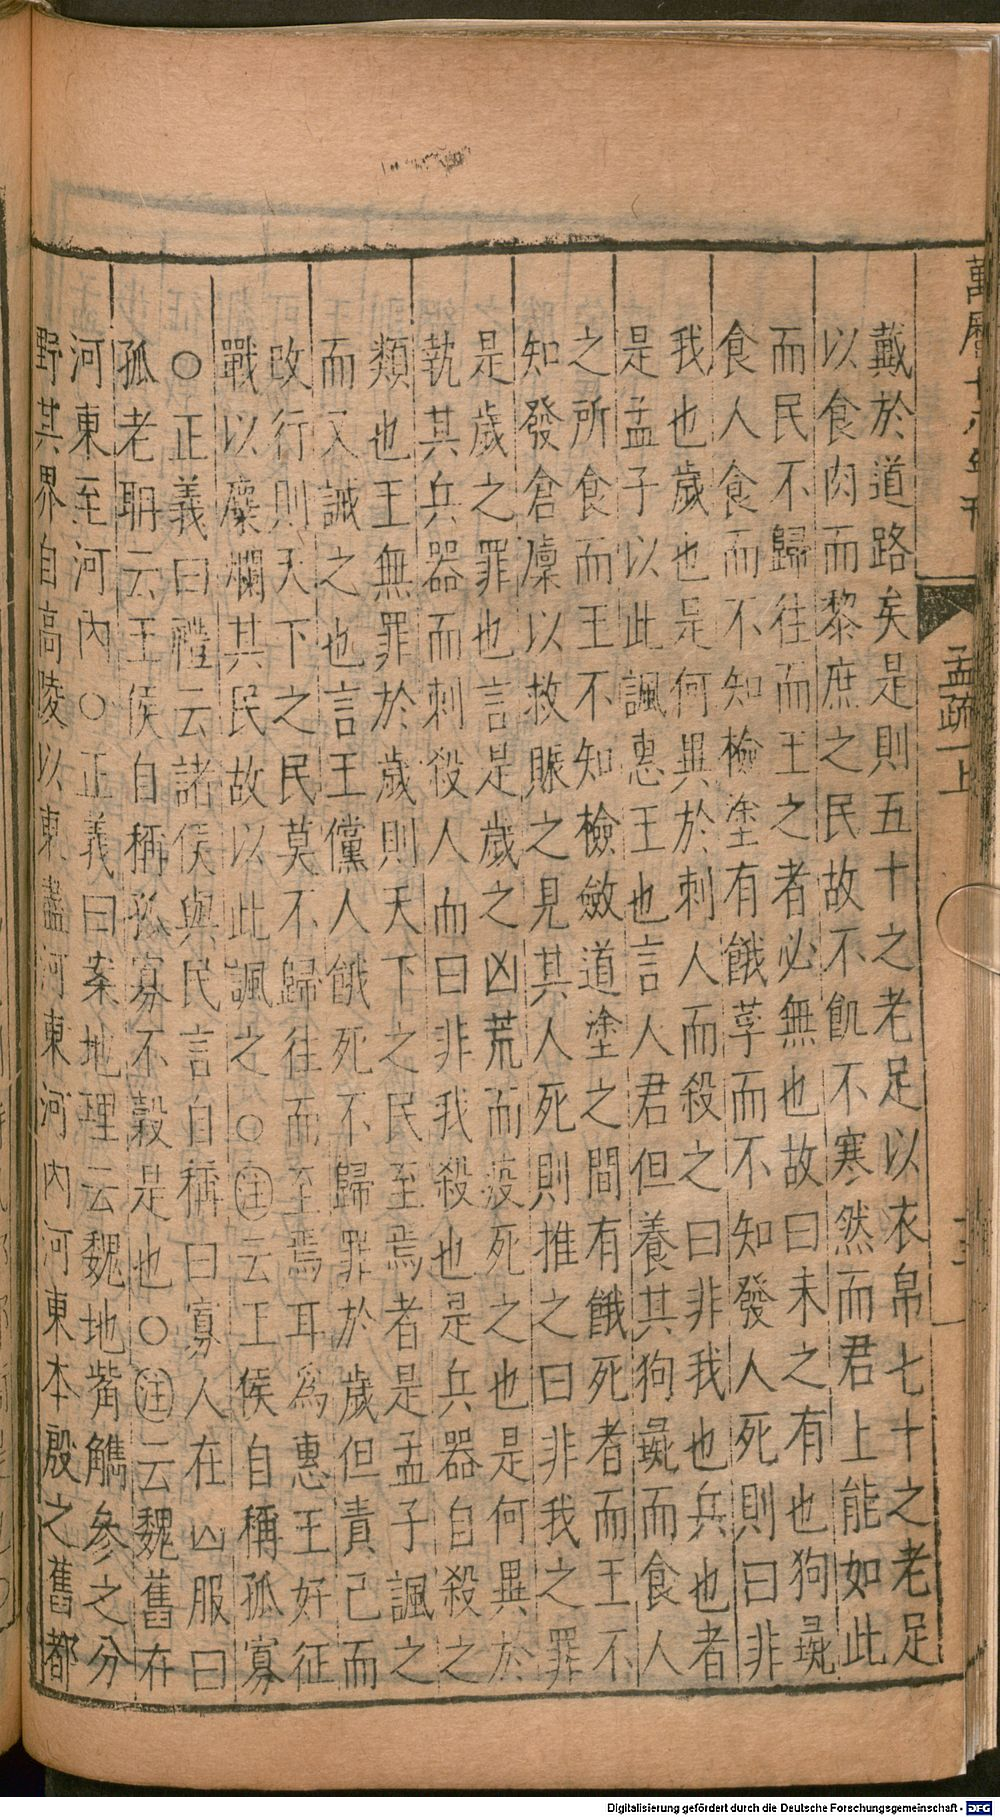 萬曆十八年刊
孟疏一上
戴於道路矣是則五十之老足以衣帛七十之老足
以食肉而黎庶之民故不飢不寒然而君上能如此
而民不歸往而王之者必無也故曰未之有也狗彘
食人食而不知檢塗有餓莩而不知發人死則曰非
我也歲也是何異於刺人而殺之曰非我也兵也者
是孟子以此諷惠王也言人君但養其狗彘而食人
之所食而王不知檢斂道塗之間有餓死者而王不
知發倉廩以救賑之見其人死則推之曰非我之罪
是歲之罪也言是歲之凶荒而疫死之也是何異於
執其兵器而刺殺人而曰非我殺也是兵器自殺之
類也王無罪於歲則天下之民至焉者是孟子諷之
而又誡之也言王儻人餓死不歸罪於歲但責己而
改行則天下之民莫不歸往而至焉耳爲惠王好征
戰以糜爛其民故以此諷之○注云王侯自稱孤寡
○正義曰禮云諸侯與民言自稱曰寡人在凶服曰
孤老聃云王侯自稱孤寡不穀是也○注云魏舊在
河東至河內○正義曰案地理云魏地觜觿參之分
野其界自高陵以東盡河東河內河東本殷之舊都
Digitalisierung gefördert durch die Deutsche Forschungsgemeinschaft - DFG